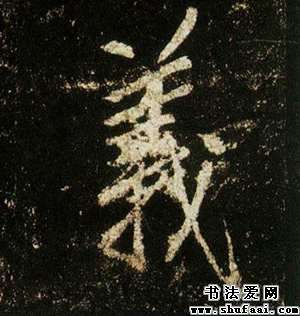 義
书法爱网
www.shufaai.com